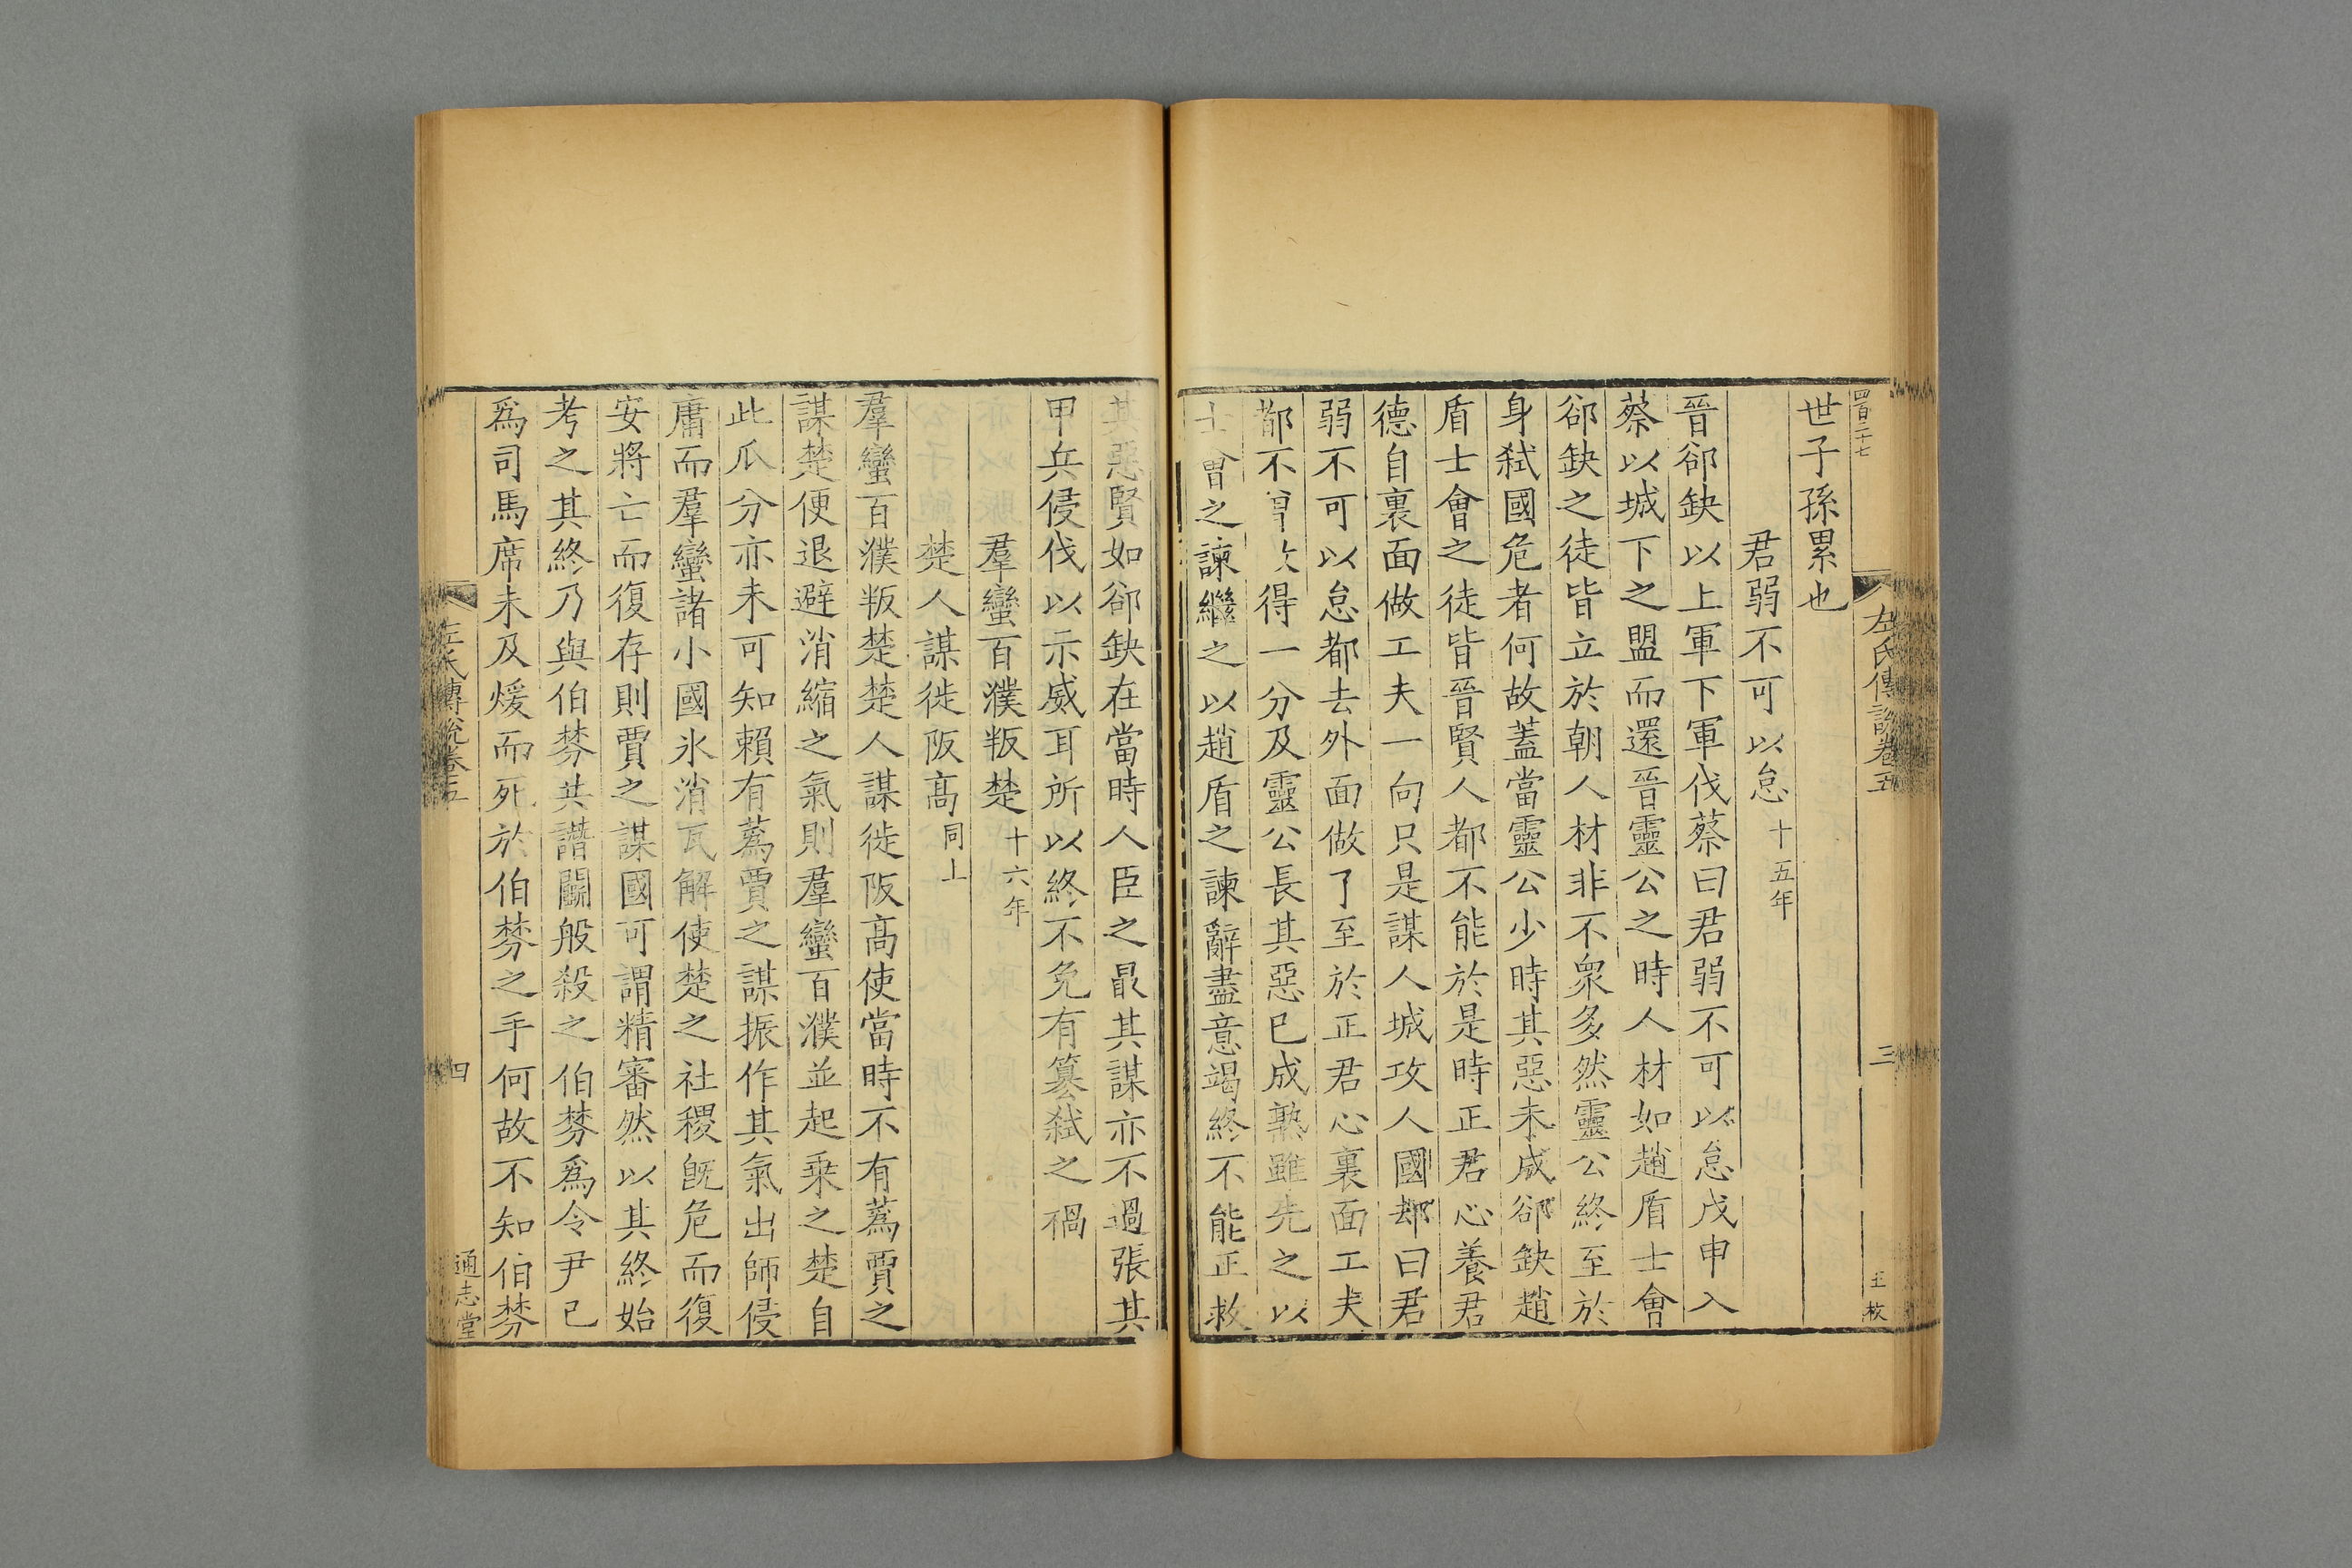 四百二十七
左氏傳說卷五
三
王枚
世子孫累也
君弱不可以怠十五年
晉郤缺以上軍下軍伐蔡曰君弱不可以怠戊申入
蔡以城下之盟而還晉靈公之時人材如趙盾士會
郤缺之徒皆立於朝人材非不衆多然靈公終至於
身弑國危者何故蓋當靈公少時其惡未成郤缺趙
盾士會之徒皆晉賢人都不能於是時正君心養君
德自裏面做工夫一向只是謀人城攻人國却曰君
弱不可以怠都去外面做了至於正君心裏面工夫
都不得一分及靈公長其惡已成熟雖先之以
士會之諫繼之以趙盾之諫辭盡意竭終不能正救
其惡賢如郤缺在當時人臣之最其謀亦不過張其
甲兵侵伐以示威耳所以終不免有篡弑之禍
羣蠻百濮叛楚十六年
楚人謀徙阪高同上
羣蠻百濮叛楚楚人謀徙阪高使當時不有蒍賈之
謀楚便退避消縮之氣則羣蠻百濮並起乘之楚自
此瓜分亦未可知賴有蒍賈之謀振作其氣出師侵
庸而羣蠻諸小國氷消瓦解使楚之社稷旣危而復
安將亡而復存則賈之謀國可謂精審然以其終始
考之其終乃與伯棼共譖鬭般殺之伯棼爲令尹己
爲司馬席未及煖而死於伯棼之手何故不知伯棼
左氏傳說卷五
四
通志堂